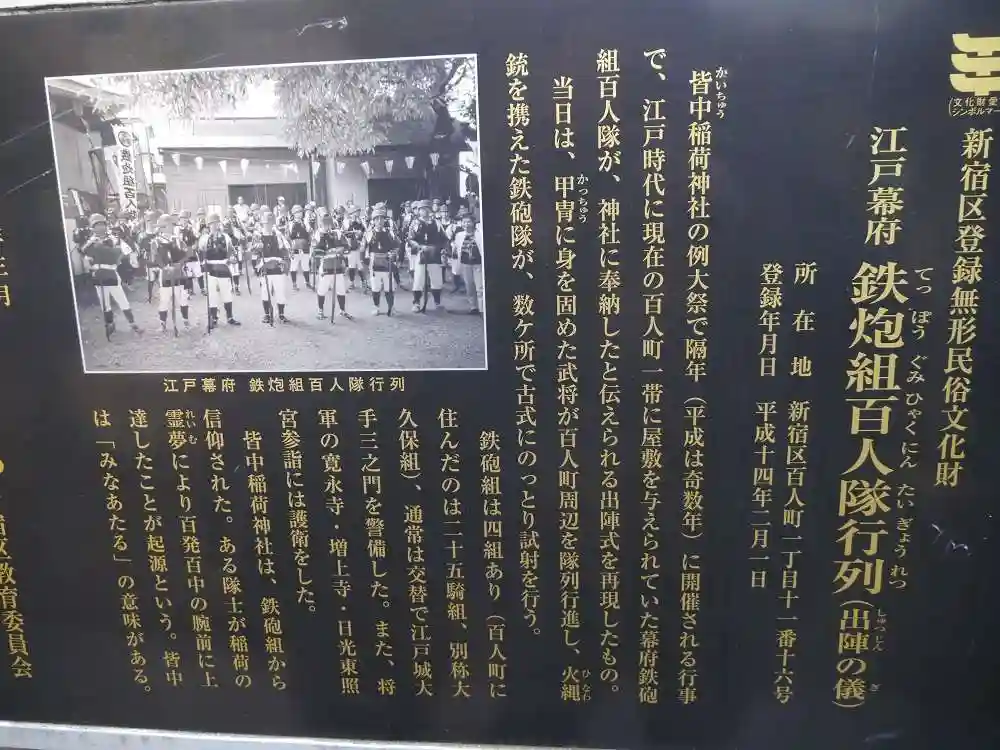 (文化財愛
シンボルマー
新宿区登録無形民俗文化財
江戸幕府 鉄炮組百人隊行列(出陣の儀)
てっぽうぐみひゃくにんたいぎょうれつ
しゅつじん ぎ
所在地 新宿区百人町一丁目十一番十六号
登録年月日 平成十四年二月一日
かいちゅう
皆中稲荷神社の例大祭で隔年(平成は奇数年)に開催される行事
で、江戸時代に現在の百人町一帯に屋敷を与えられていた幕府鉄砲
組百人隊が、神社に奉納したと伝えられる出陣式を再現したもの。
かっちゅう
ひなわ
当日は、甲冑に身を固めた武将が百人町周辺を隊列行進し、火縄
銃を携えた鉄砲隊が、数ケ所で古式にのっとり試射を行う。
鉄炮組百人
江戸幕府 鉄炮組百人隊行列
鉄砲組は四組あり(百人町に
住んだのは二十五騎組、別称大
久保組)、通常は交替で江戸城大
手三之門を警備した。また、将
軍の寛永寺・増上寺・日光東照
宮参詣には護衛をした。
皆中稲荷神社は、鉄砲組から
信仰された。ある隊士が稲荷の
れいむ
霊夢により百発百中の腕前に上
達したことが起源という。皆中
は「みなあたる」の意味がある。
年三月
宿区教育委員会